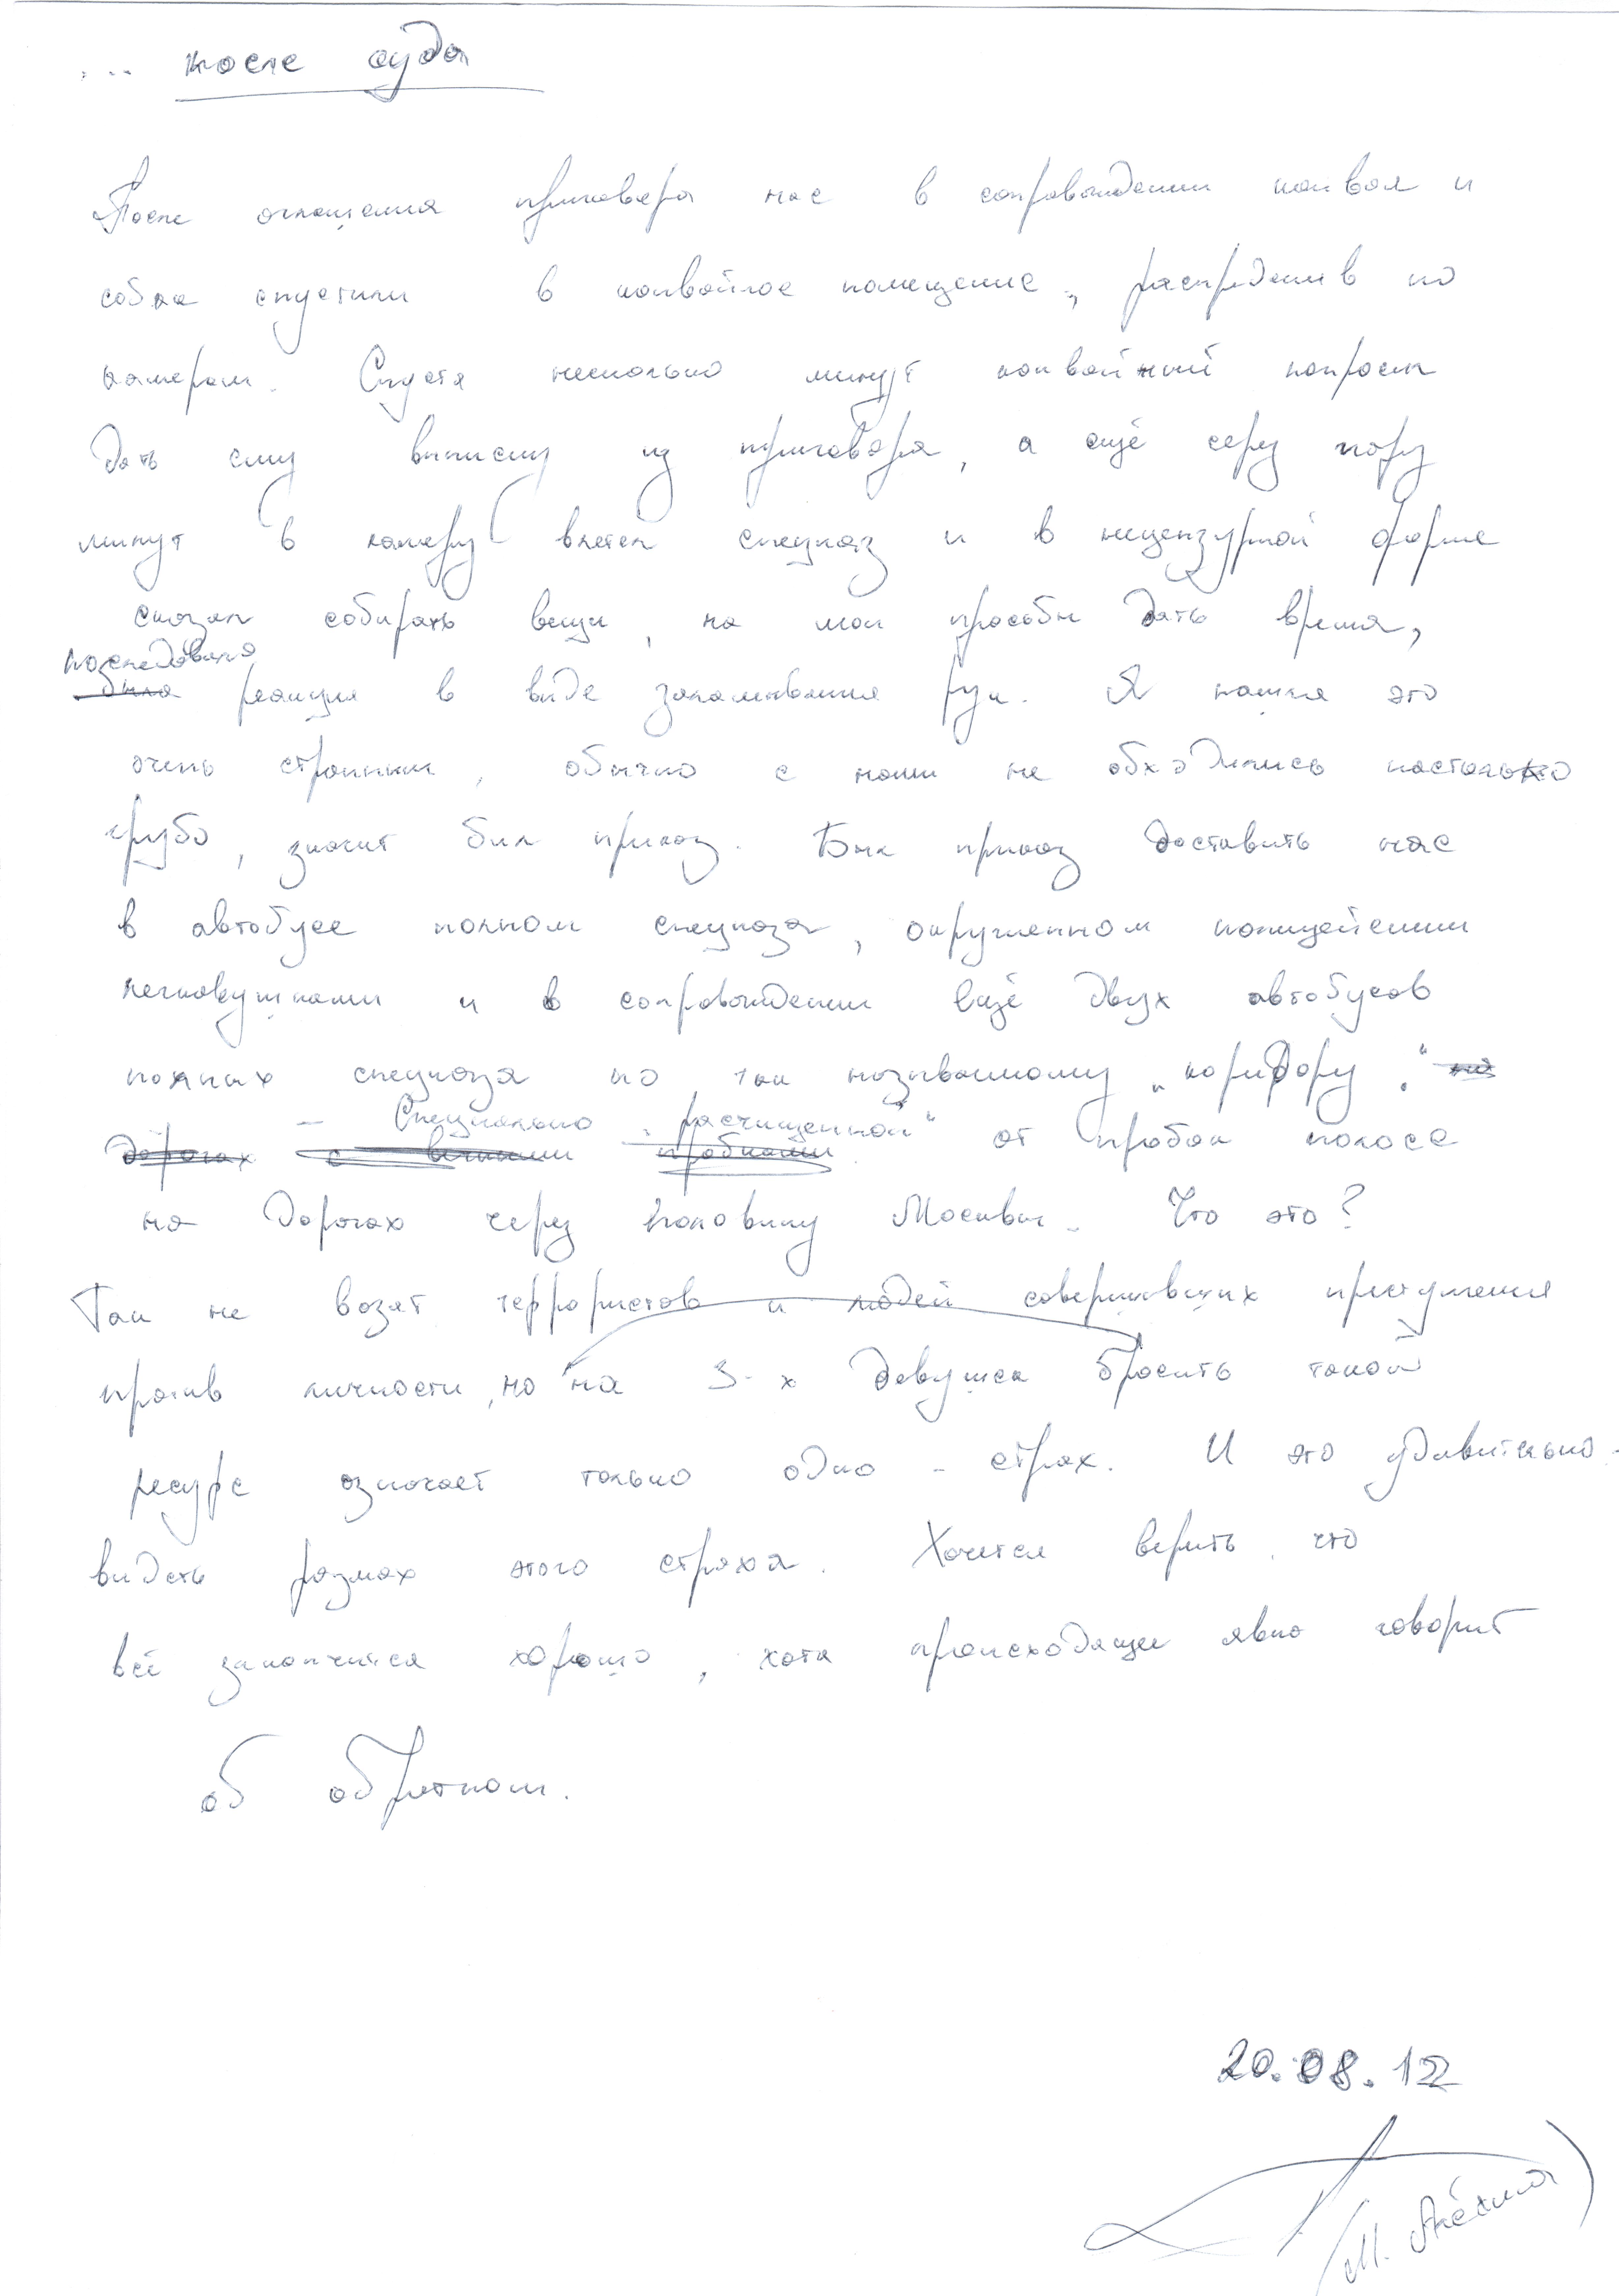 ... после суда
После оглашения приговора нас в сопровождении конвоя и
собак спустили в конвойное помещение, распределив по
камерам. Спустя несколько минут конвойный попросил
дать ему выписку из приговора, а ещё через пору
минут в камеру влетел спецназ и в нецензурной форме
сказал собирать вещи, на мои просьбы дать время,
последовала
была реакция в виде заламывания рук. Я нашла это
очень странным, обычно с нами не обходились настолько
грубо, значит был приказ. Был приказ доставить нас
в автобусе полном спецназа, окруженном полицейскими
легковушками и в сопровождении ещё двух автобусов
полных спецназа по так называемому „коридору" на
– специально „расчищенной"
дорогах с вечными пробками от пробок полосе
на дорогах через половину Москвы. Что это?
Так не возят террористов и людей совершивших преступления
против личности, но на 3-х девушек бросить такой
ресурс означает только одно – страх. И это удивительно –
видеть размах этого страха. Хочется верить, что
всё закончится хорошо, хотя происходящее явно говорит
об обратном.
20.08.12
(М. Алёхина)